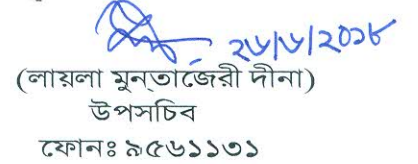 ২৬/৬/২০১৮
(লায়লা মুন্তাজেরী দীনা)
উপসচিব
ফোনঃ ৯৫৬১১৩১